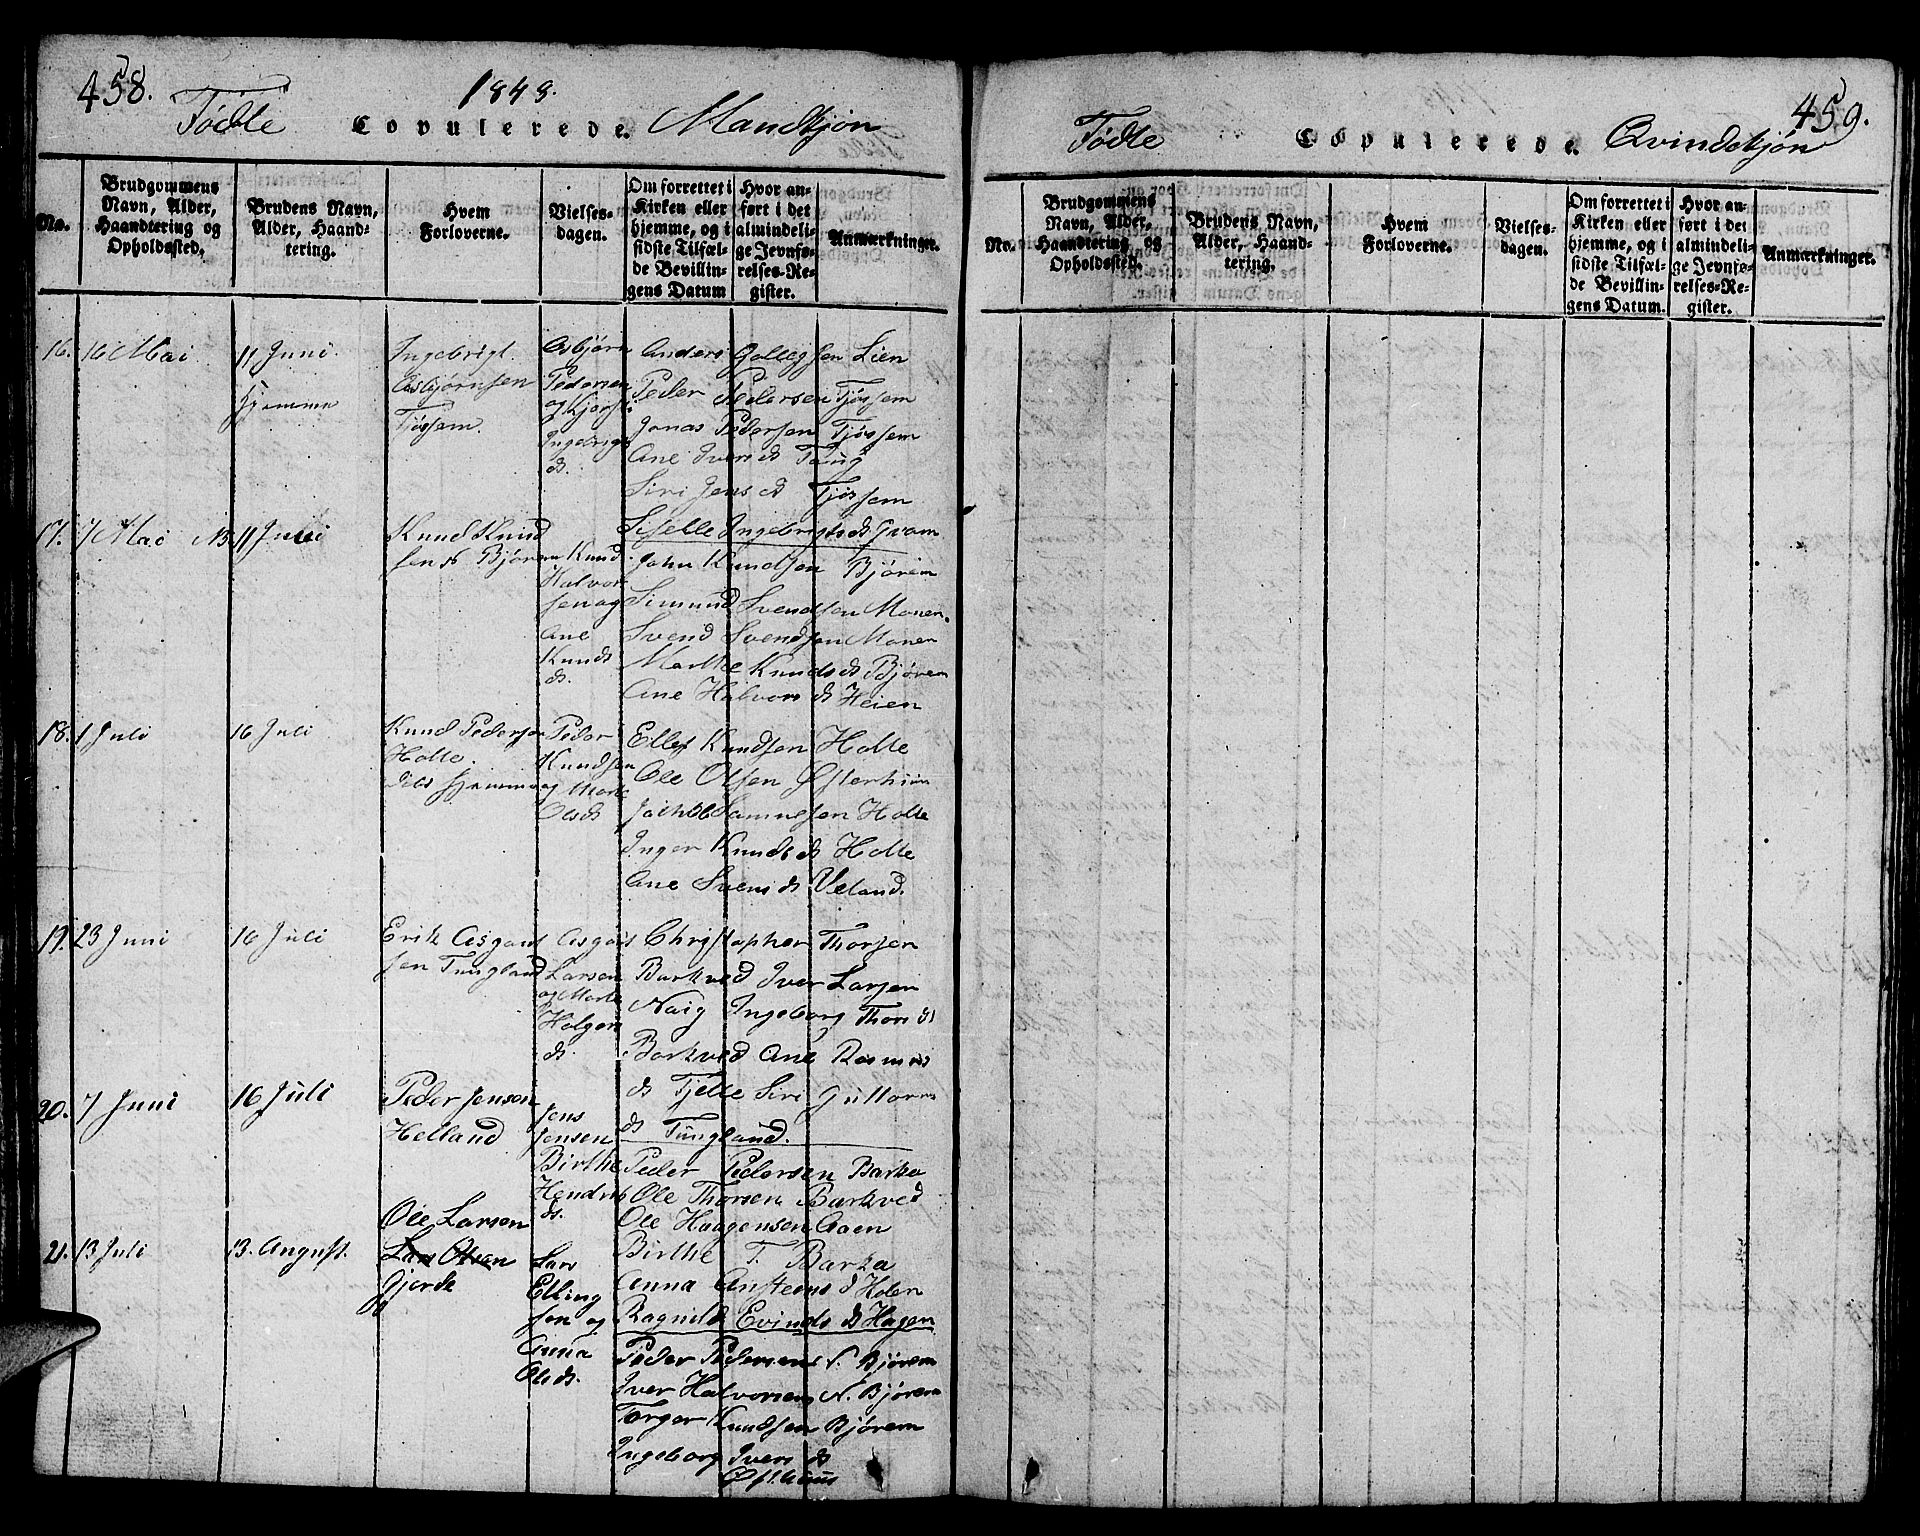 458.
1848.
Fødte Copulerede. Mandkjøn
No.
Brudgommens Navn, Alder, Haandtering og Opholdssted.
Brudens Navn, Alder, Haandtering.
Hvem Forloverne.
Vielsesdagen.
Om forrettet i Kirken eller hjemme, og i sidste Tilfælde Bevillingens Datum
Hvor anført i det almindelige Jevnførelses-Register.
Anmærkninger.
16. 16 Mai
11 Juni.
Hjemme
Ingebrigt
Asbjørnsen
Tjøssem.
Asbjørn
Pedersen
og Kjersti
Ingebrigts
d.
Anders Gollegsen Lien
Peder Pedersen Tjøssem
Jonas Pedersen Tjøssem
Ane Ivers d Taug
Siri Jens d Tjøssem
Siselle Ingebrigts d Gram
17. 7 Mai NB 11 Juni
Knud Knud
sen N Bjørem
Knud
Halvor
sen og
Ane
Knuds
d.
John Knudsen Bjørem
Simund Svendsen Monen.
Svend Svendsen Monen
Marthe Knuds d Bjørem
Ane Halvors d Heien
18. 1 Juli
16 Juli
Knud Pedersen
Holte.
døbt Hjemme
Peder
Knudsen
og Marte
Olsd
Ellef Knudsen Holte
Ole Olsen Østerhuus
Jacob Samuelsen Holte
Inger Knuds d Holte
Ane Svens d Veland.
19. 23 Juni
16 Juli
Erik Asgaut
sen Tungland
Asgaut
Larsen
og Marte
Holger
d.
Christopher Thorsen
Barkved Iver Larsen
Naig Ingeborg Thors d
Barkved Ane Rasmus
d Tjelte Siri Guttorms
d Tungland.
20. 7 Juni
16 Juli
Peder Jensen
Helland
Jens
Jensen
Birthe
Hendriks
d.
Peder Pedersen Barka
Ole Thorsen Barkved
Ole Haagensen Aaen
Birthe T. Barka
Anna Anstens d Holen
Ragnild Evinds d Hagen
21. 13 Juli
13. August.
Ole Larsen
Lars Olsen
Gjerde
Lars
Elling
sen og
Anna
Olsd.
Peder Pedersen N. Bjørem
Iver Halvorsen N. Bjørem
Torger Knudsen Bjørem
Ingeborg Ivers d
Østhuus
459.
Fødte Copulerede. Qvindekjøn
No.
Brudgommens Navn, Alder, Haandtering og Opholdssted.
Brudens Navn, Alder, Haandtering.
Hvem Forloverne.
Vielsesdagen.
Om forrettet i Kirken eller hjemme, og i sidste Tilfælde Bevillingens Datum.
Hvor anført i det almindelige Jevnførelses-Register.
Anmærkninger.